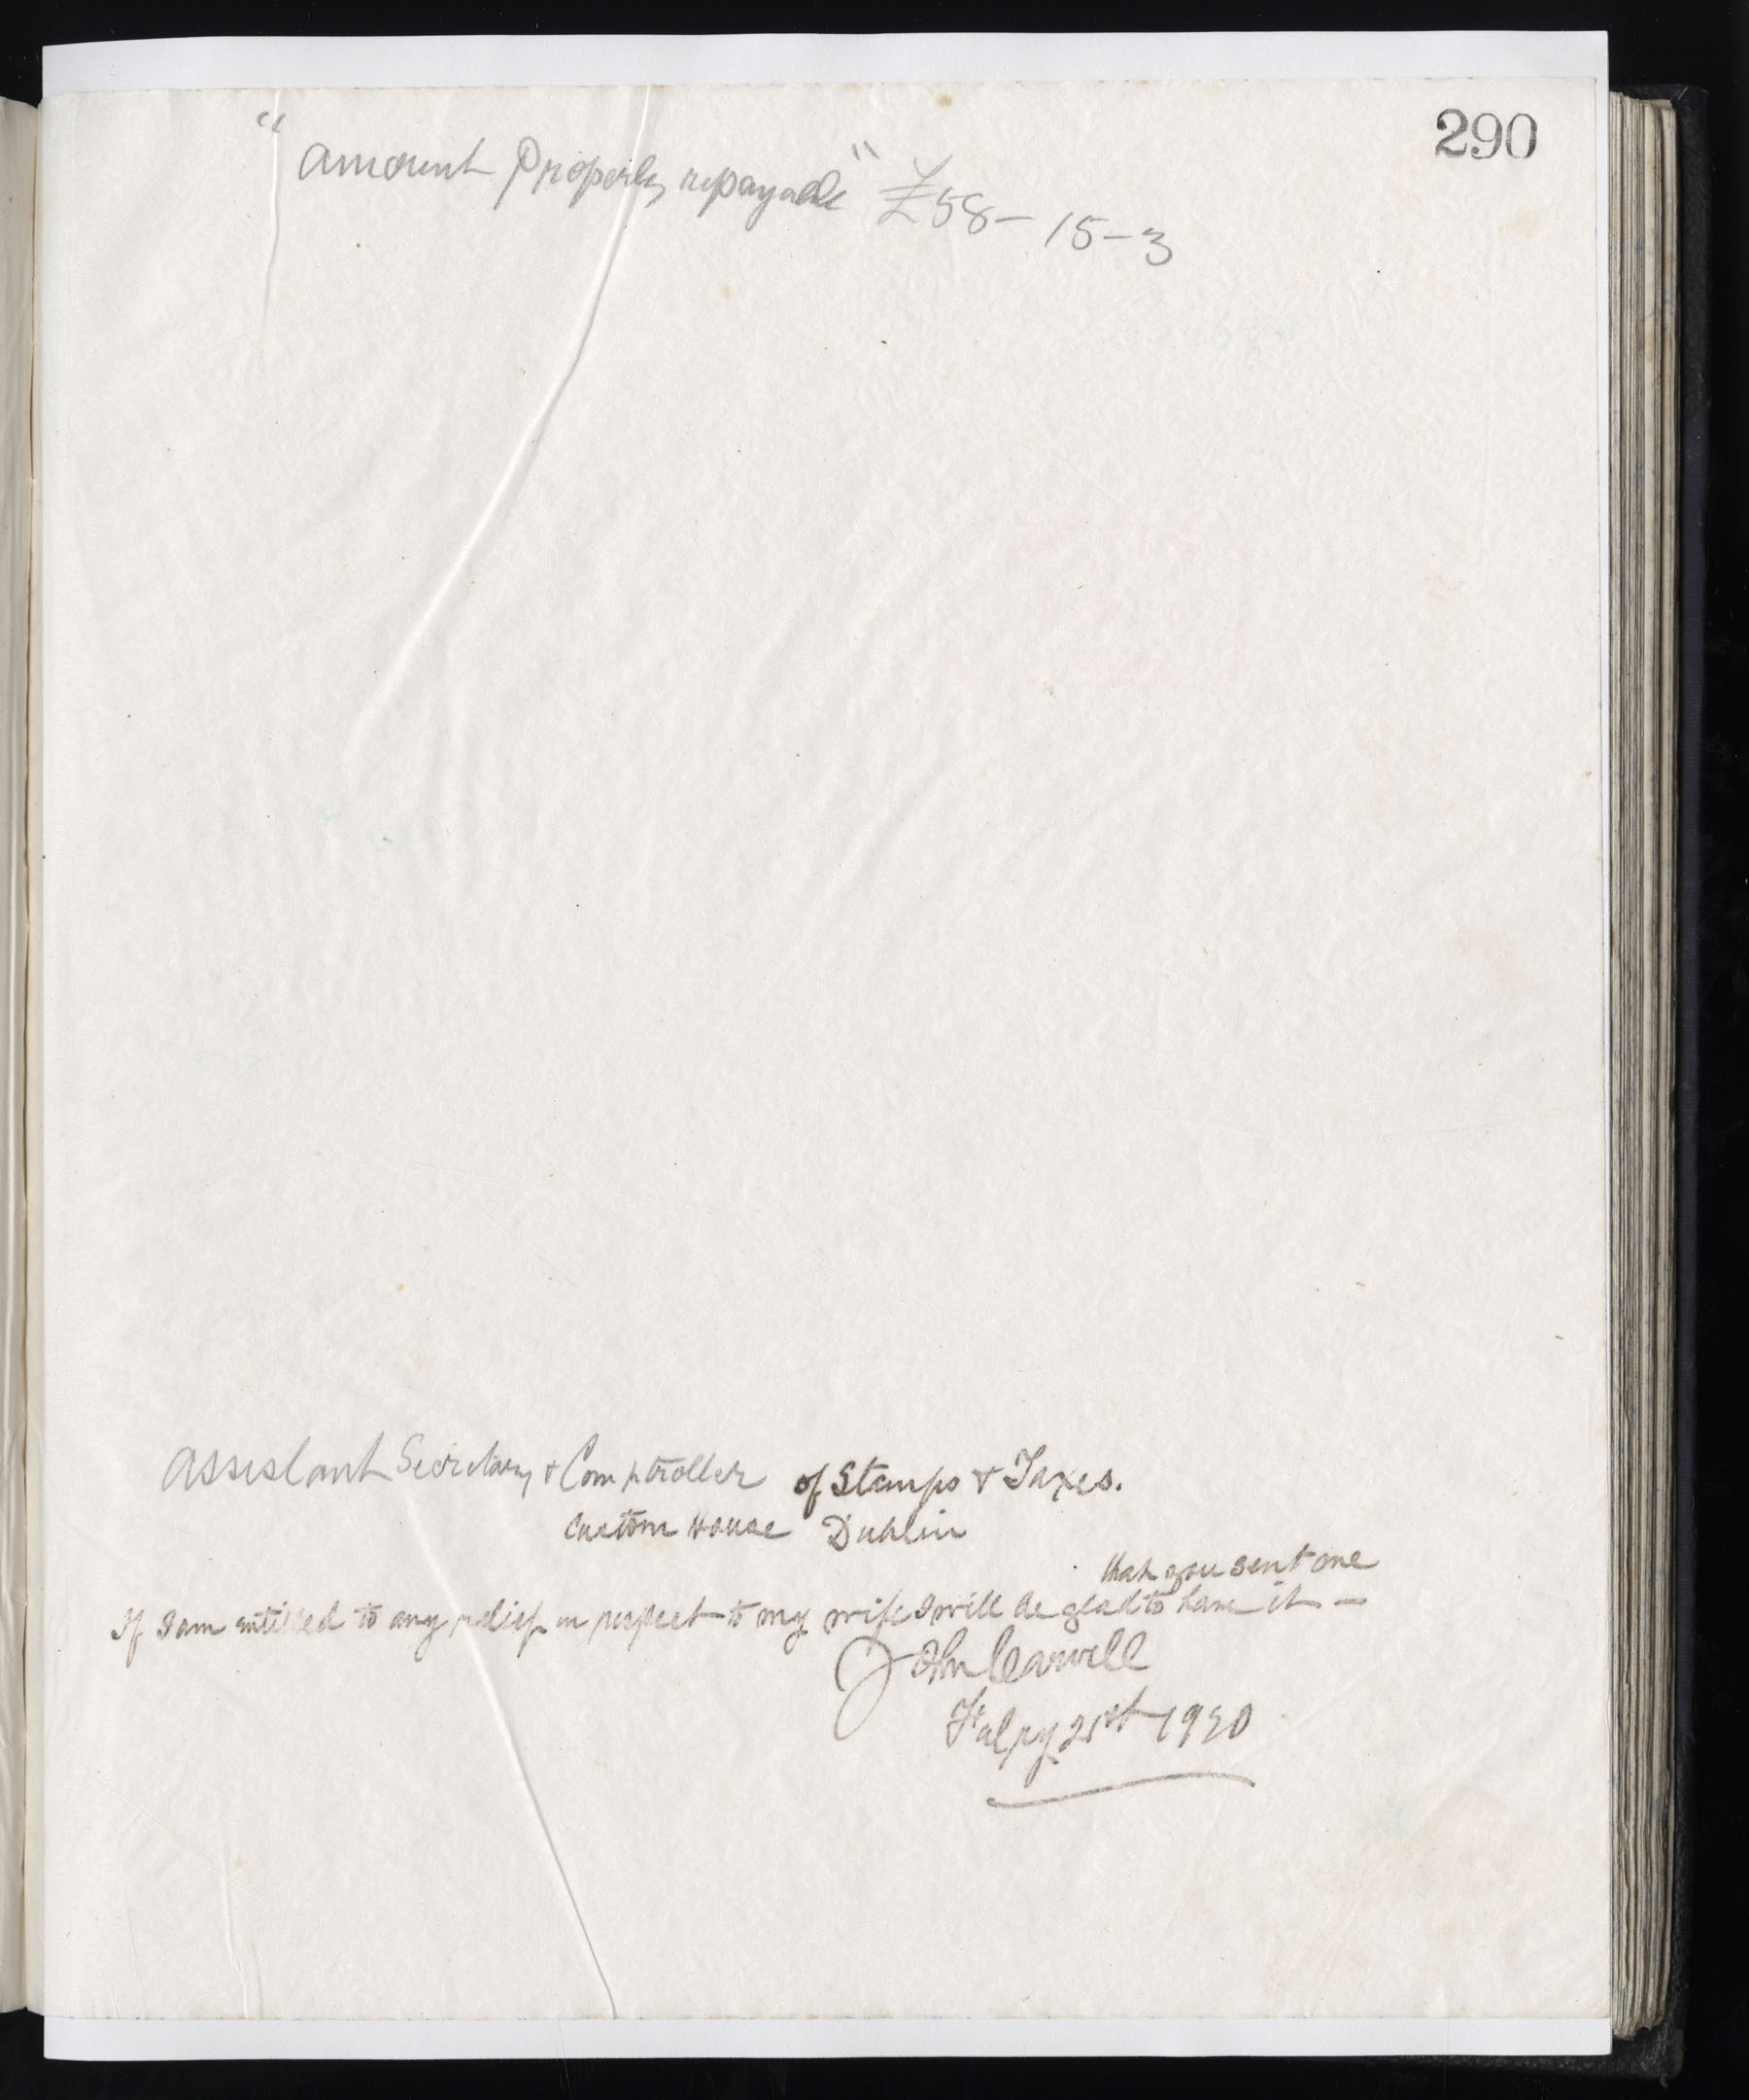 290
"Amount properly repayable" £58-15-3
Assistant Secretary & Comptroller of Stamps & Taxes.
Custom House Dublin
that you sent me
If I am entitled to any relief in respect to my wife I will be glad to have it —
John
21st 1920